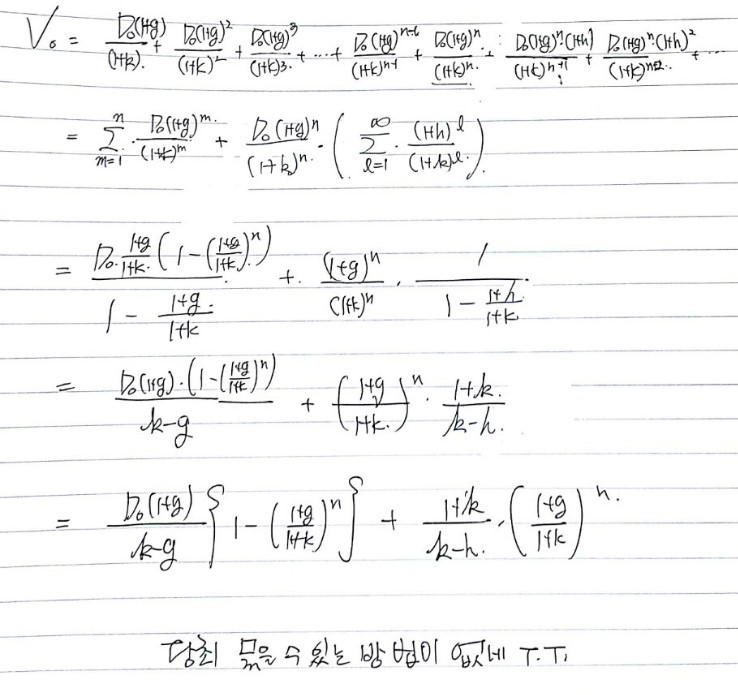 V₀ = D₀(1+g)/(1+k). + D₀(1+g)²/(1+k)² + D₀(1+g)³/(1+k)3. + ... + D₀(1+g)ⁿ⁻¹/(1+k)ⁿ⁻¹ + D₀(1+g)ⁿ/(1+k)ⁿ. + D₀(1+g)ⁿ·(1+h)/(1+k)ⁿ⁺¹ + D₀(1+g)ⁿ·(1+h)²/(1+k)ⁿ⁺².. + ...
= Σ_{m=1}^{n} · D₀(1+g)^m./(1+k)^m + D₀(1+g)ⁿ/(1+k)ⁿ. · ( Σ_{l=1}^{∞} · (1+h)^l/(1+k)^l. )
= D₀· (1+g)/(1+k). (1-((1+g)/(1+k))ⁿ) / (1 - (1+g)/(1+k)) + (1+g)ⁿ/(1+k)ⁿ · 1/(1 - (1+h)/(1+k))
= D₀(1+g)·(1-((1+g)/(1+k))ⁿ)/(k-g) + ((1+g)/(1+k))ⁿ · (1+k)/(k-h).
= D₀(1+g)/(k-g) {1-((1+g)/(1+k))ⁿ} + (1+k)/(k-h). · ((1+g)/(1+k))ⁿ.
당최 묶을 수 있는 방법이 없네 T.T.